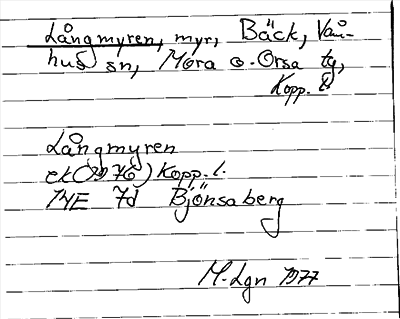 Långmyren, myr, Bäck, Våm-
hus sn, Mora o. Orsa tg,
Kopp. l.
Långmyren
ek(1976) Kopp. l.
14E 7d Björnsaberg
M. Lgn 1977